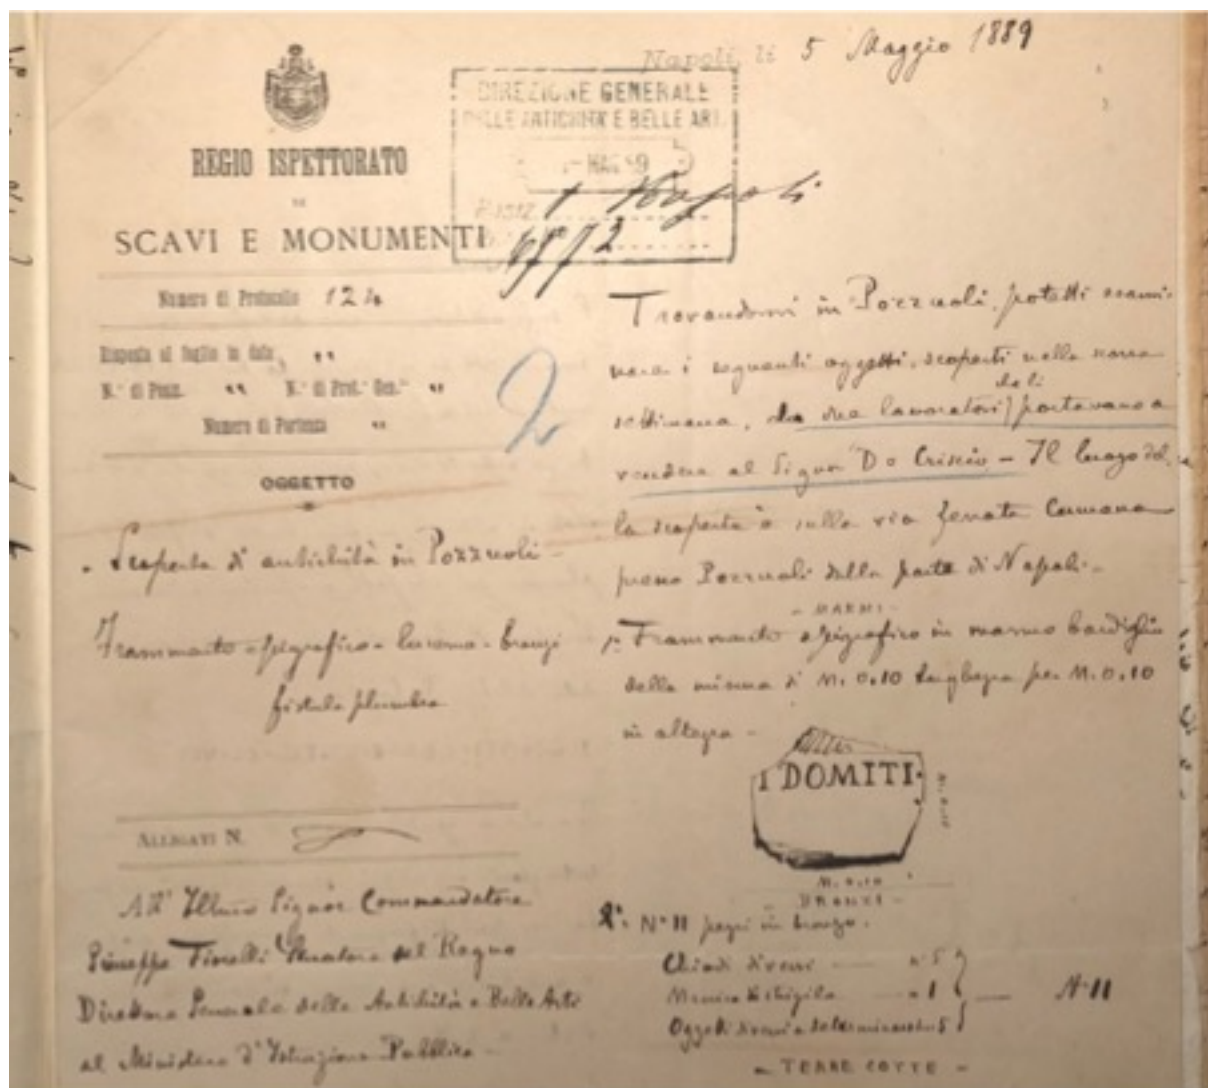 Napoli, li 5 Maggio 1889
DIREZIONE GENERALE
DELLE ANTICHITA E BELLE ARTI
MAG 89
Napoli
REGIO ISPETTORATO
SCAVI E MONUMENTI
Numero di Protocollo 124
Risposta al foglio in data "
N.º di Posiz. " N.º di Prot. Gen. "
Numero di Partenza "
OGGETTO
Scoperta di antichità in Pozzuoli -
Frammento epigrafico - lucerna - bronzi
fistula plumbea
ALLEGATI N.
All' Illmo Signor Commendatore
Giuseppe Fiorelli Senatore del Regno
Direttore Generale delle Antichità e Belle Arti
al Ministero d'Istruzione Pubblica -
2
Trovandomi in Pozzuoli, potetti esami-
nare i seguenti oggetti, scoperti nella scorsa
settimana, che due lavoratori portavano a
vendere al Signor De Criscio - Il luogo del-
la scoperta è sulla via ferrata Cumana
presso Pozzuoli dalla parte di Napoli -
- MARMI -
Frammento epigrafico in marmo bardiglio
della misura di M. 0.10 larghezza per M. 0.10
in altezza -
I DOMITI
M. 0.10
M. 0.10
- BRONZI -
2º. Nº 11 pezzi in bronzo.
Chiodi diversi - nº 5
Manico di strigile - " 1
Oggetti diversi 5
Nº 11
- TERRE COTTE -